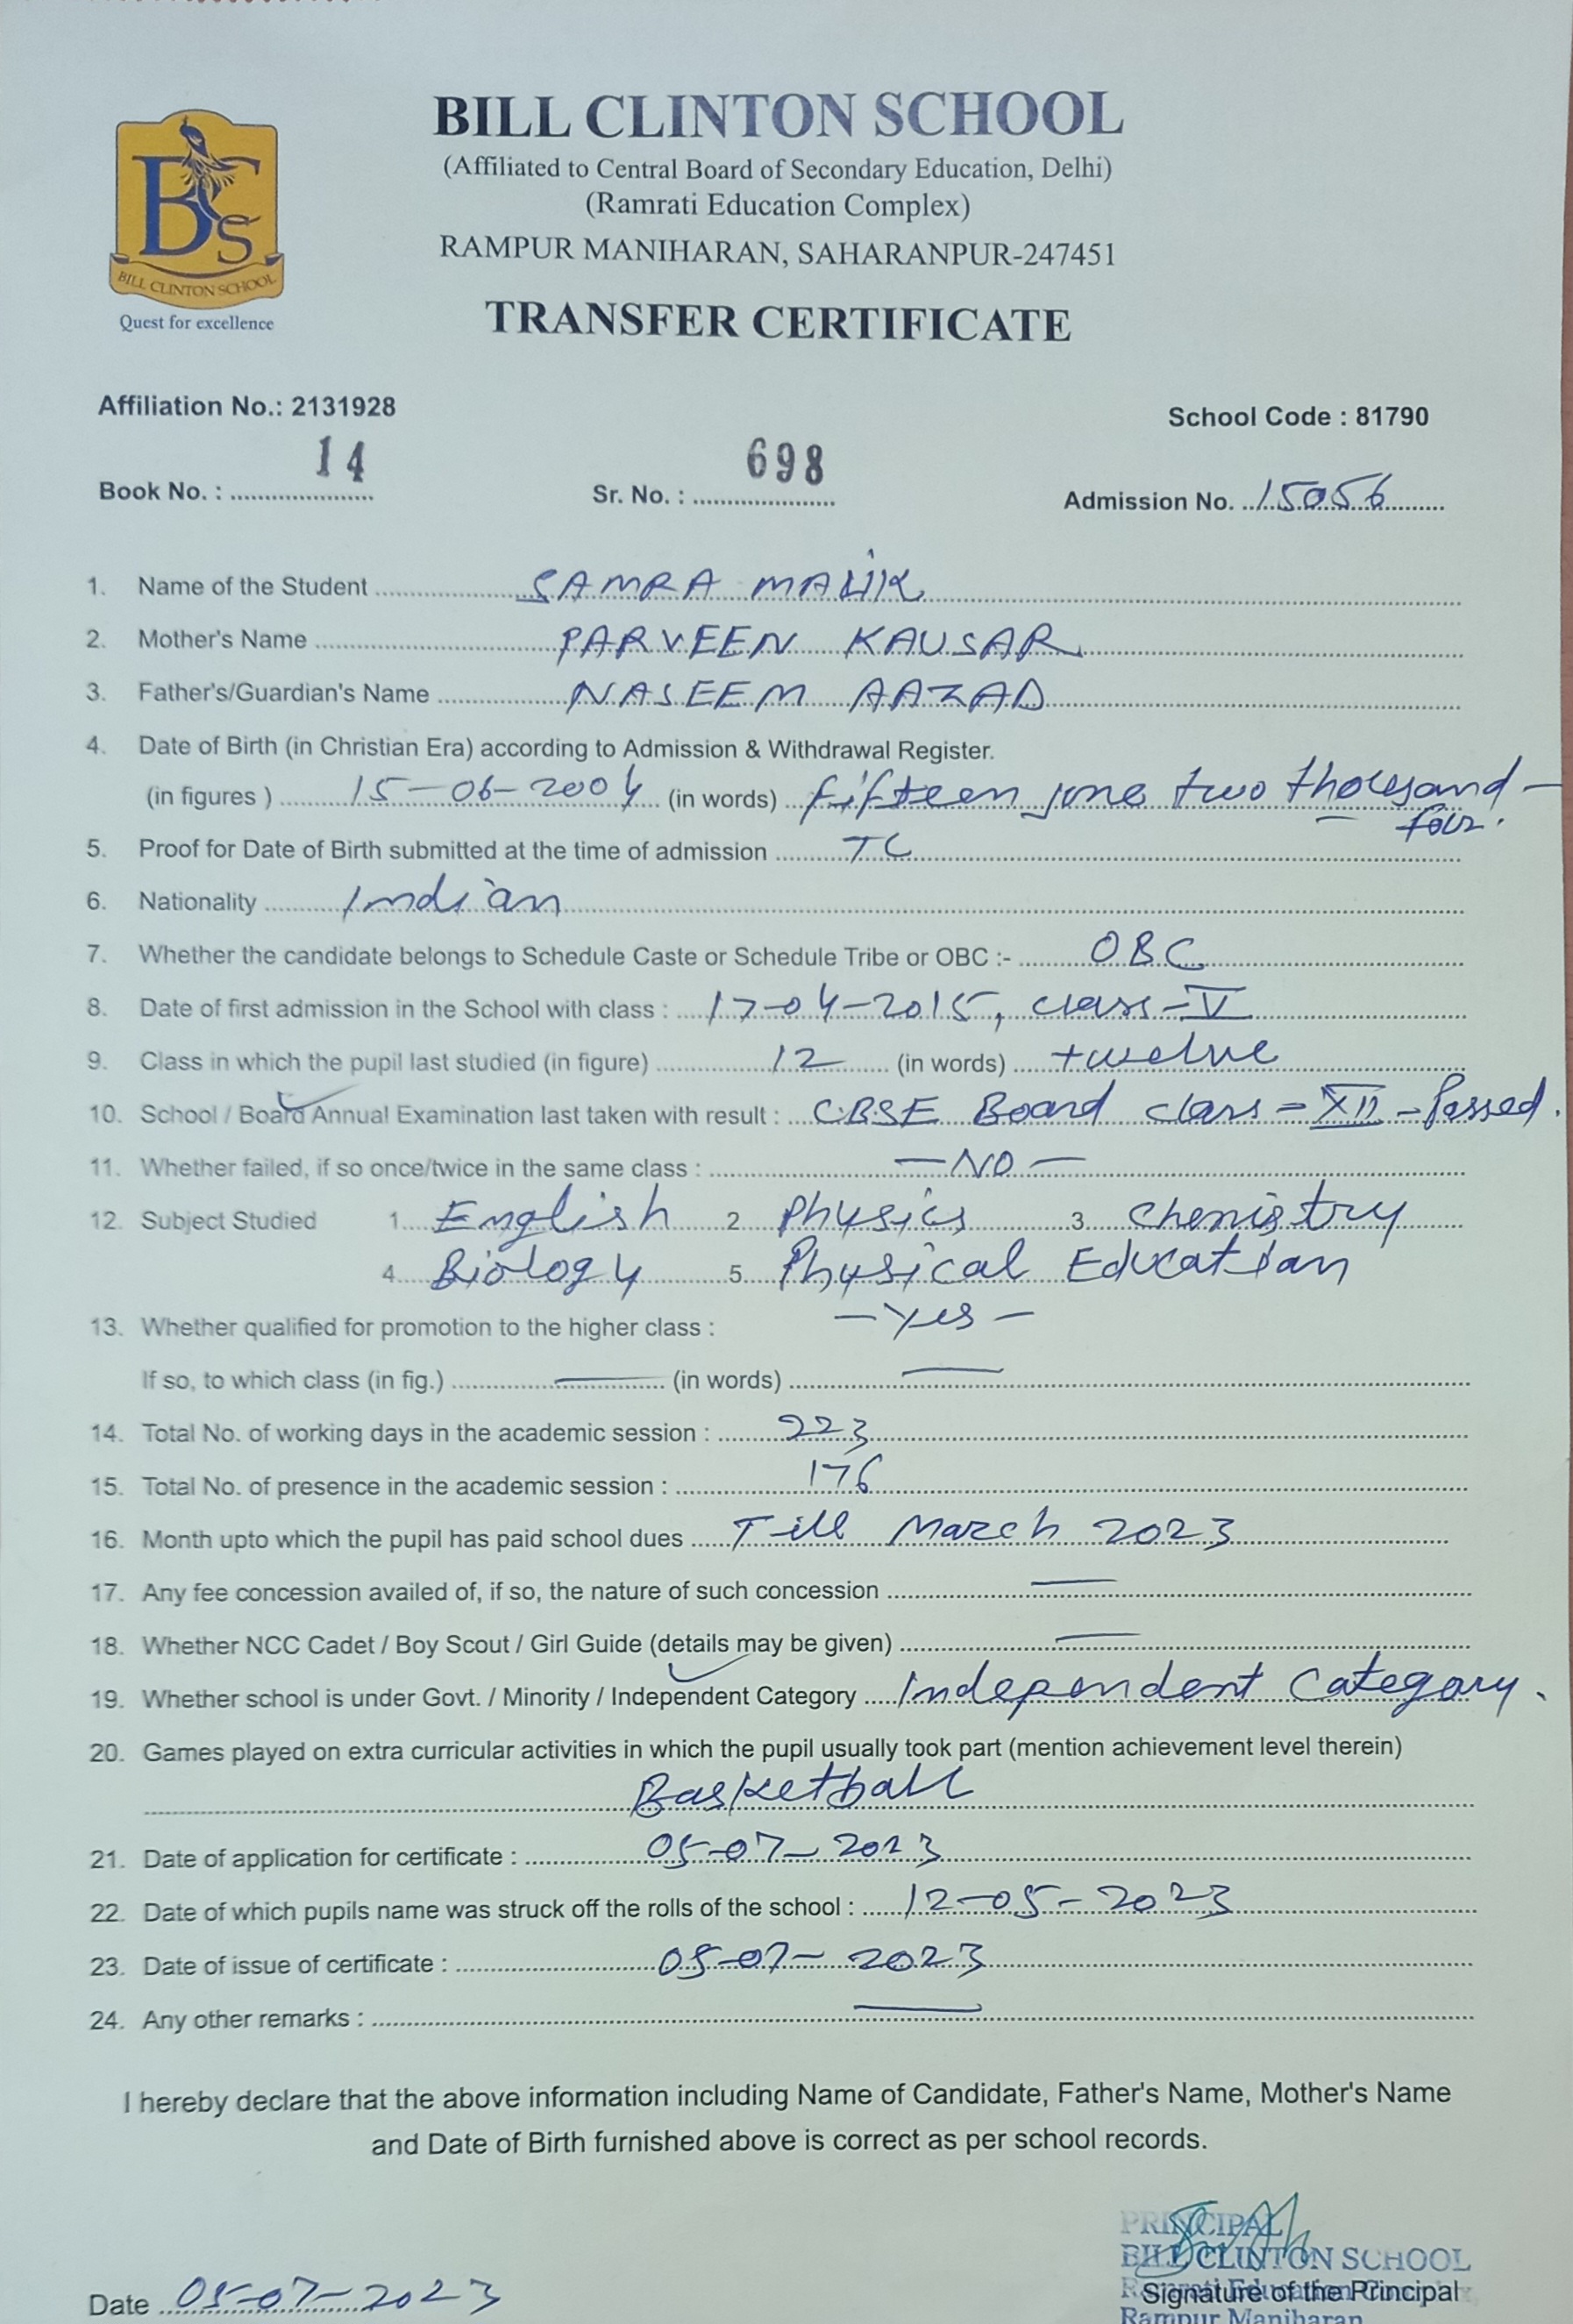 BILL CLINTON SCHOOL
(Affiliated to Central Board of Secondary Education, Delhi)
(Ramrati Education Complex)
RAMPUR MANIHARAN, SAHARANPUR-247451
BCS
BILL CLINTON SCHOOL
Quest for excellence
TRANSFER CERTIFICATE
Affiliation No.: 2131928
School Code : 81790
Book No. : 14 Sr. No. : 698 Admission No. 15056
1. Name of the Student SAMRA MALIK
2. Mother's Name PARVEEN KAUSAR
3. Father's/Guardian's Name NASEEM AAZAD
4. Date of Birth (in Christian Era) according to Admission & Withdrawal Register.
(in figures ) 15-06-2004 (in words) fifteen june two thousand - four.
5. Proof for Date of Birth submitted at the time of admission TC
6. Nationality Indian
7. Whether the candidate belongs to Schedule Caste or Schedule Tribe or OBC :- OBC
8. Date of first admission in the School with class : 17-04-2015, class-V
9. Class in which the pupil last studied (in figure) 12 (in words) twelve
10. School / Board Annual Examination last taken with result : CBSE Board class-XII-Passed.
11. Whether failed, if so once/twice in the same class : -NO-
12. Subject Studied 1. English 2. Physics 3. Chemistry
4. Biology 5. Physical Education
13. Whether qualified for promotion to the higher class : -Yes-
If so, to which class (in fig.) — (in words) —
14. Total No. of working days in the academic session : 223
15. Total No. of presence in the academic session : 176
16. Month upto which the pupil has paid school dues Till March 2023
17. Any fee concession availed of, if so, the nature of such concession —
18. Whether NCC Cadet / Boy Scout / Girl Guide (details may be given) —
19. Whether school is under Govt. / Minority / Independent Category Independent Category.
20. Games played on extra curricular activities in which the pupil usually took part (mention achievement level therein)
Basketball
21. Date of application for certificate : 05-07-2023
22. Date of which pupils name was struck off the rolls of the school : 12-05-2023
23. Date of issue of certificate : 05-07-2023
24. Any other remarks : —
I hereby declare that the above information including Name of Candidate, Father's Name, Mother's Name
and Date of Birth furnished above is correct as per school records.
PRINCIPAL
BILL CLINTON SCHOOL
Date 05-07-2023 Signature of the Principal
Rampur Maniharan